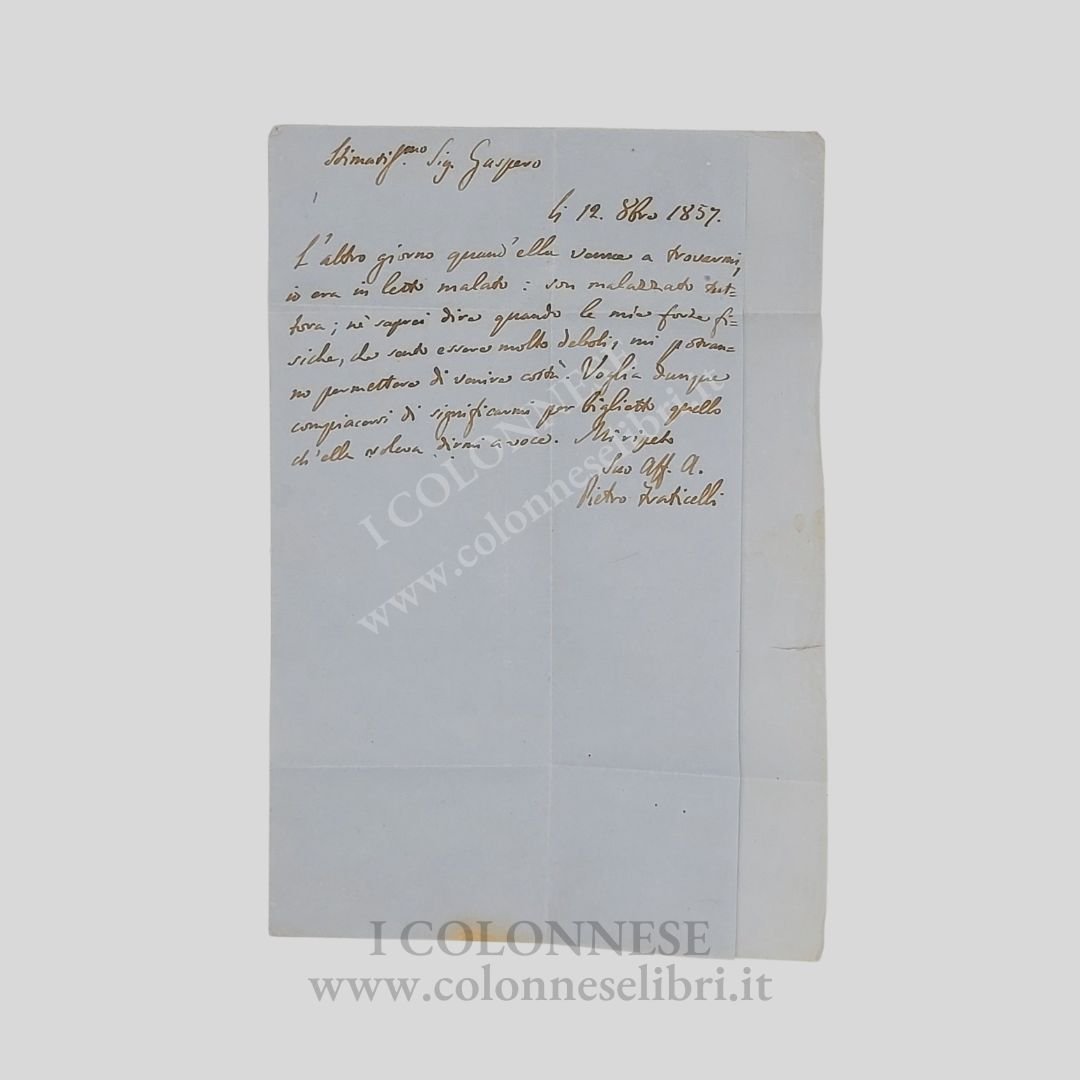 Stimatis.mo Sig. Gaspero
li 12. 8bre 1857.
L'altro giorno quand'ella venne a trovarmi,
io era in letto malato: son malazzato tut=
tora; nè saprei dire quando le mie forze fi=
siche, che sento essere molto deboli, mi potran=
no permettere di venire costà. Voglia dunque
compiacersi di significarmi per biglietto quello
ch'ella voleva dirmi a voce. Mi ripeto
Suo Aff. A.
Pietro Fraticelli
I COLONNESE
www.colonneselibri.it
I COLONNESE
www.colonneselibri.it